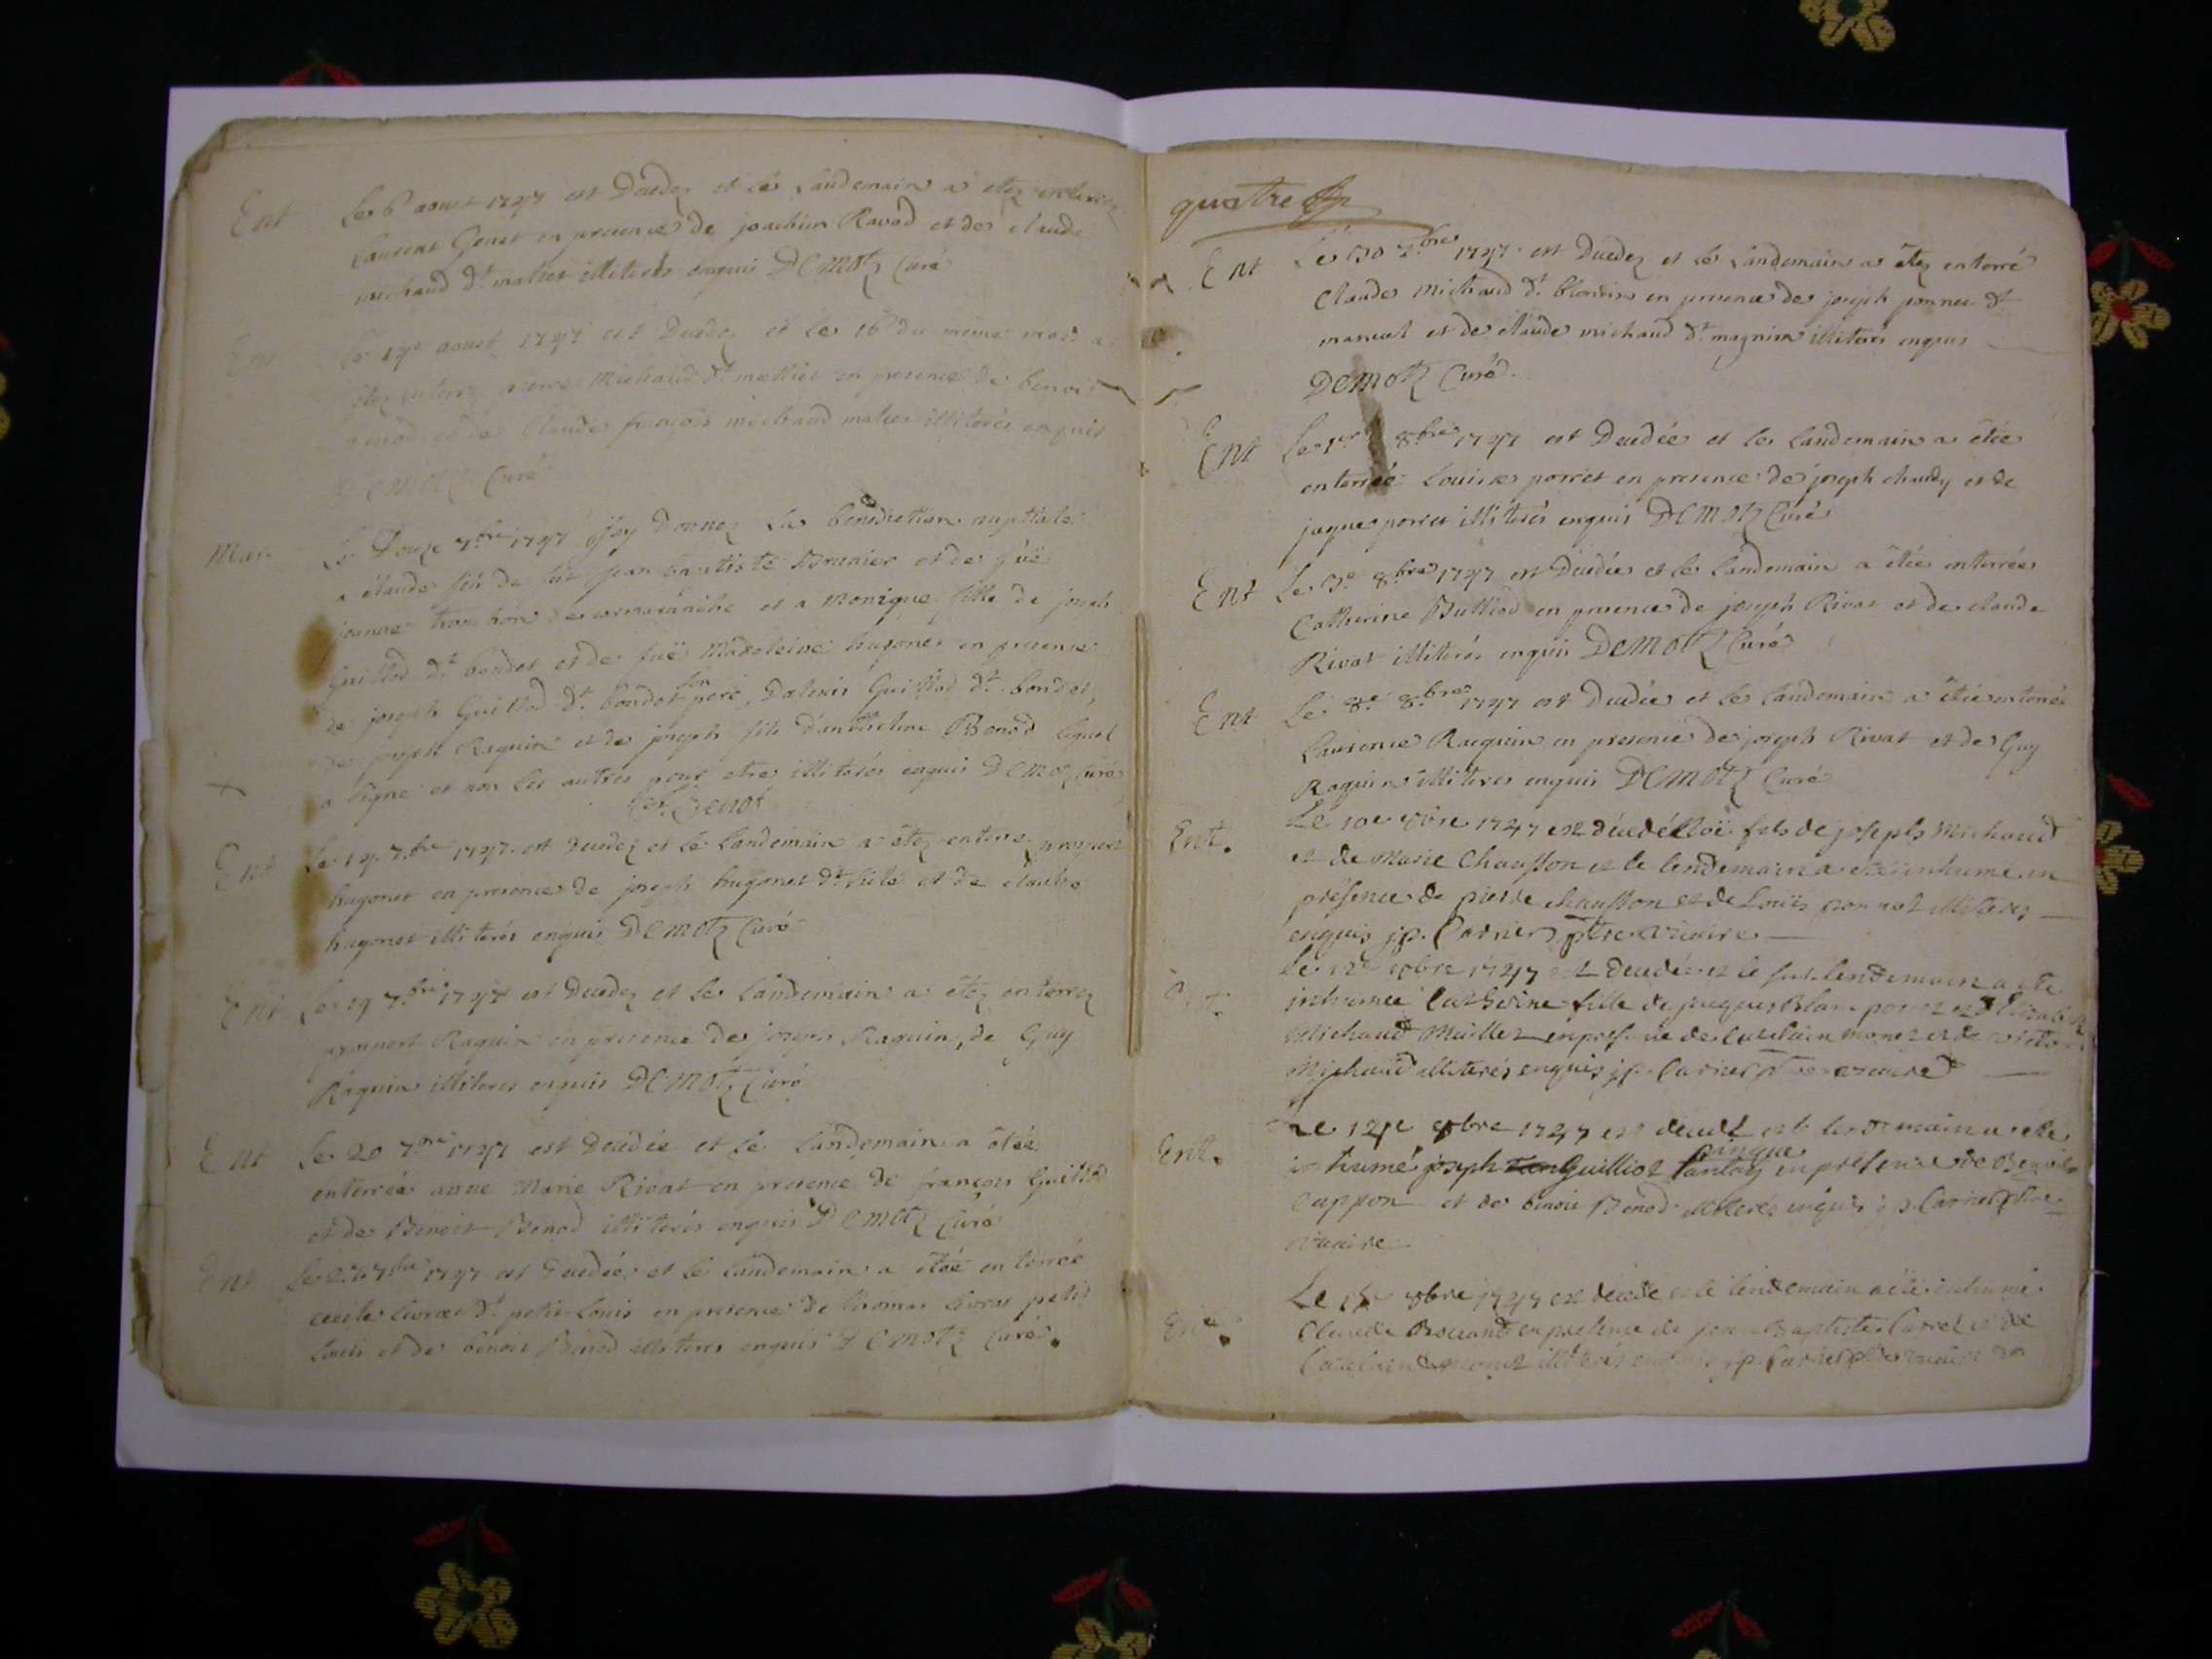 Ent Le 6 aoust 1747 est Decedez et le Landemain a etez enterrez
Laurent Genet en presence de joachim Ravod et de claude
michaud dt. matier illiterés enquis DEMOTZ Curé
Ent Le 14e aoust 1747 est Decedez et le 16 du même mois a
etez enterrez pierre Michaud dt. mellier en presence de benoit
benod et de Claude françois michaud illiterés enquis
DEMOTZ Curé
Mar. Le Douze 7.bre 1747 j'ay Donnez La benediction nuptiale
a claude fils de fut jean baptiste Brunier et de fuë
jeanne de cormaranche et a Monique fille de joseph
Guillod dt. bondet et de fuë Madeleine hugonet en presence
de joseph Guillod dt. bondet son pere, Dalexis Guillod dt. bondet,
de joseph Raquin et de joseph fils Danthelme Benod lequel
a signé et non les autres pour etre illiterés enquis DEMOTZ Curé
Benod
Ent Le 14 7.bre 1747 est Decedez et le Landemain a etez enterré prospert
hugonet en presence de joseph hugonet dt. et de claude
hugonet illiterés enquis DEMOTZ Curé
Ent Le 19 7.bre 1747 est Decedez et le Landemain a etez enterrez
prospert Raquin en presence de joseph Raquin, de Guy
Raquin illiteres enquis DEMOTZ Curé
Ent Le 20 7bre 1747 est Decedée et le Landemain a êtée
enterrée anne Marie Rivat en presence de françois Guillod
et de Benoit Benod illiterés enquis DEMOTZ Curé
Ent Le 7bre 1747 est Decedée et le landemain a êtée enterrée
cecile livrat dt. petit Louis en presence de thomas livrat petit
louis et de benoit Benod illiteres enquis DEMOTZ Curé.
quatre
Ent Le 30 7.bre 1747 est Decedez et le Landemain a êtez enterré
Claude Michaud dt. blondin en presence de joseph ponnet dt.
manuel et de claude michaud dt. magnin illiterés enquis
DEMOTZ Curé.
Ent Le 1er 8.bre 1747 est Decedée et le landemain a êtée
enterrée Louise porret en presence de joseph chaudy et de
jaque porret illiterés enquis DEMOTZ Curé
Ent Le 3e 8.bre 1747 est Decedée et le landemain a êtée enterrée
Catherine Bulliod en presence de joseph Rivat et de claude
Rivat illiterés enquis DEMOTZ Curé
Ent Le 8e 8.bre 1747 est Decedée et le landemain a êtée enterrée
Laurence Racquin en presence de joseph Rivat et de Guy
Raquin illiteres enquis DEMOTZ Curé
Ent. Le 10e 1747 est décedé Elloï fils de joseph Michaud
et de Marie Chausson et le lendemain a été inhume en
présence de pierre chausson et de Louis ponnet illiterez
enquis jp. Carrier ptre vicaire
Le 12e 1747 est decedée et le lendemain a été
inhumee Catherine fille de jacques Blanc et Elizabeth
Michaud Meillet en présence de monet et de victor
Michaud illiterés enquis jp. Carrier vicaire
Ent. Le 1747 est decedé et le lendemain a été
inhumé joseph Guilliot en présence de Benoit
Cappon et de benoit Benod illiterés enquis jp. Carrier ptre
vicaire
Ent. Le 1747 est décedé et le lendemain a été inhumé
Claude en présence de jean Baptiste Carrel et de
illiterés enquis jp. Carrier ptre vicaire